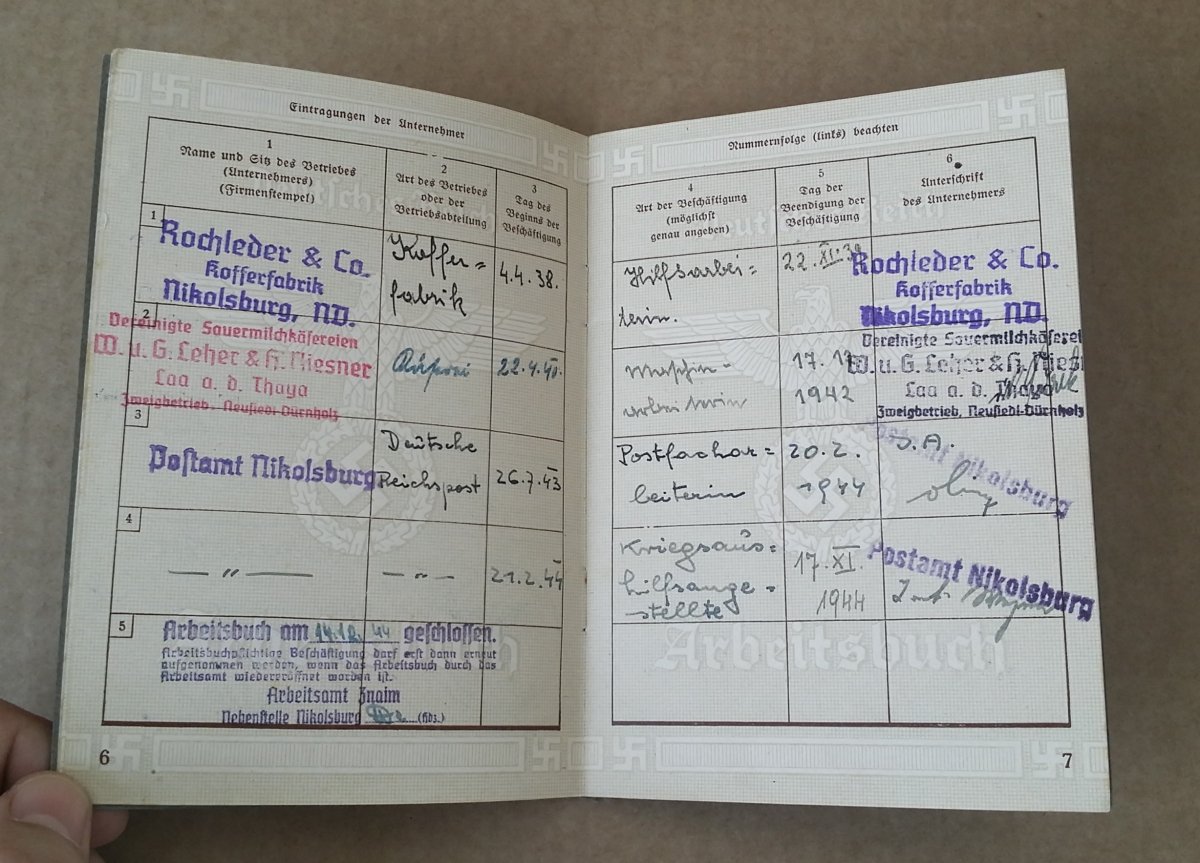 Eintragungen der Unternehmer
1
Name und Sitz des Betriebes
(Unternehmers)
(Firmenstempel)
2
Art des Betriebes
oder der
Betriebsabteilung
3
Tag des
Beginns der
Beschäftigung
1
Rochleder & Co.
Kofferfabrik
Nikolsburg, ND.
Koffer=
fabrik
4.4.38.
2
Vereinigte Sauermilchkäsereien
W. u. G. Leher & H. Niesner
Laa a. d. Thaya
Zweigbetrieb, Neusiedl-Dürnholz
22.4.40.
3
Postamt Nikolsburg
Deutsche
Reichspost
26.7.43
4
— " —
— " —
21.2.44
5
Arbeitsbuch am 14.12.44 geschlossen.
Arbeitsbuchpflichtige Beschäftigung darf erst dann erneut
aufgenommen werden, wenn das Arbeitsbuch durch das
Arbeitsamt wiedereröffnet worden ist.
Arbeitsamt Znaim
Nebenstelle Nikolsburg (Hdz.)
6
Nummernfolge (links) beachten
4
Art der Beschäftigung
(möglichst
genau angeben)
5
Tag der
Beendigung der
Beschäftigung
6
Unterschrift
des Unternehmers
Hilfsarbei=
terin.
22.XI.39
Rochleder & Co.
Kofferfabrik
Nikolsburg, ND.
Maschin-
arbeiterin
17.
1942
Vereinigte Sauermilchkäsereien
W. u. G. Leher & H. Niesner
Laa a. d. Thaya
Zweigbetrieb, Neusiedl-Dürnholz
Postfachar=
beiterin
20.2.
1944
J. A.
Postamt Nikolsburg
Kriegsaus=
hilfsange=
stellte
17.XI.
1944
Postamt Nikolsburg
Arbeitsbuch
7